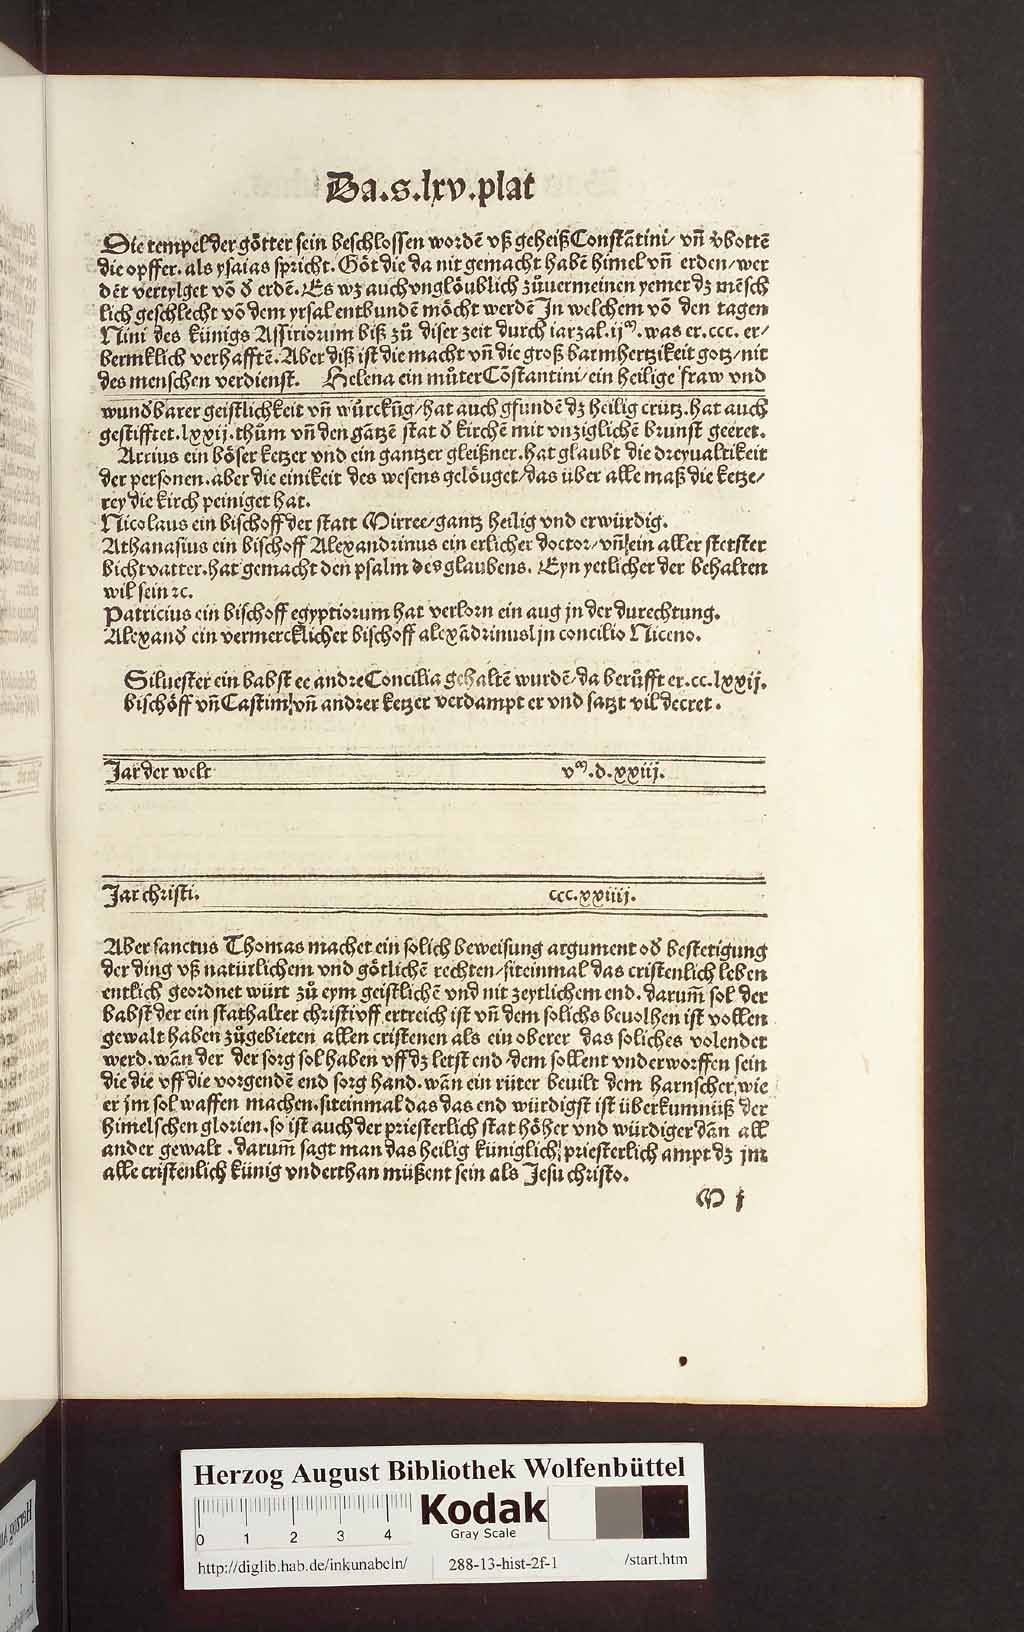 Da.s.lxv.plat
Die tempel der goͤtter sein beschlossen wordē vß geheiß Constātini/ vn̄ v̓bottē
die opffer. als ysaias spricht. Goͤt die da nit gemacht habē himel vn̄ erden/wer
dēt vertylget vō ð erdē. Es wz auch vngloͤublich zůuermeinen yemer dz mēsch
lich geschlecht vō dem yrsal entbundē moͤcht werdē In welchem vō den tagen
Nini des künigs Assiriorum biß zů diser zeit durch iarzal.ijᵐ. was er.ccc. er/
bermklich verhafftē. Aber diß ist die macht vn̄ die groß barmhertzikeit gotz/nit
des menschen verdienst. Helena ein můter Cōstantini/ein heilige fraw vnd
wunðbarer geistlichkeit vn̄ würckn̄g/hat auch gfundē dz heilig crütz.hat auch
gestifftet.lxxij.thům vn̄ den gātzē stat ð kirchē mit vnziglichē brunst geeret.
Arrius ein boͤser ketzer vnd ein gantzer gleißner.hat glaubt die dreyualtikeit
der personen.aber die einikeit des wesens geloͤuget/das über alle maß die ketze/
rey die kirch peiniget hat.
Nicolaus ein bischoff der statt Mirree/gantz heilig vnd erwürdig.
Athanasius ein bischoff Alexandrinus ein erlicher doctor/vn̄ ein aller stetster
bichtvatter.hat gemacht den psalm des glaubens. Eyn yetlicher der behalten
wil sein ꝛc.
Patricius ein bischoff egyptiorum hat verlorn ein aug jn der durechtung.
Alexanð ein vermercklicher bischoff alexādrinus jn concilio Niceno.
Siluester ein babst ee andre Concilia gehaltē wurdē/da berůfft er.cc.lxxij.
bischoͤff vn̄ Castim vn̄ andrer ketzer verdampt er vnd satzt vil decret.
Jar der welt vᵐ.d.xxiij.
Jar christi. ccc.xxiiij.
Aber sanctus Thomas machet ein solich beweisung argument oð bestetigung
der ding vß natürlichem vnd goͤtlichē rechten/siteinmal das cristenlich leben
entlich geordnet würt zů eym geistlichē vnd nit zeytlichem end. darum̄ sol der
babst der ein stathalter christi vff ertreich ist vn̄ dem solichs beuolhen ist vollen
gewalt haben zůgebieten allen cristenen als ein oberer das soliches volendet
werd. wan̄ der der sorg sol haben vff dz letst end/dem sollent vnderworffen sein
die die vff die vorgendē end sorg hand. wan̄ ein rüter beuilt dem harnscher, wie
er jm sol waffen machen.siteinmal das das end würdigst ist überkumnüß der
himelschen glorien.so ist auch der priesterlich stat hoͤher vnd würdiger dan̄ all
ander gewalt. darum̄ sagt man das heilig küniglich priesterlich ampt dz jm
alle cristenlich künig vnderthan müßent sein als Jesu christo.
M j
Herzog August Bibliothek Wolfenbüttel
0 1 2 3 4
Kodak
Gray Scale
http://diglib.hab.de/inkunabeln/ 288-13-hist-2f-1 /start.htm